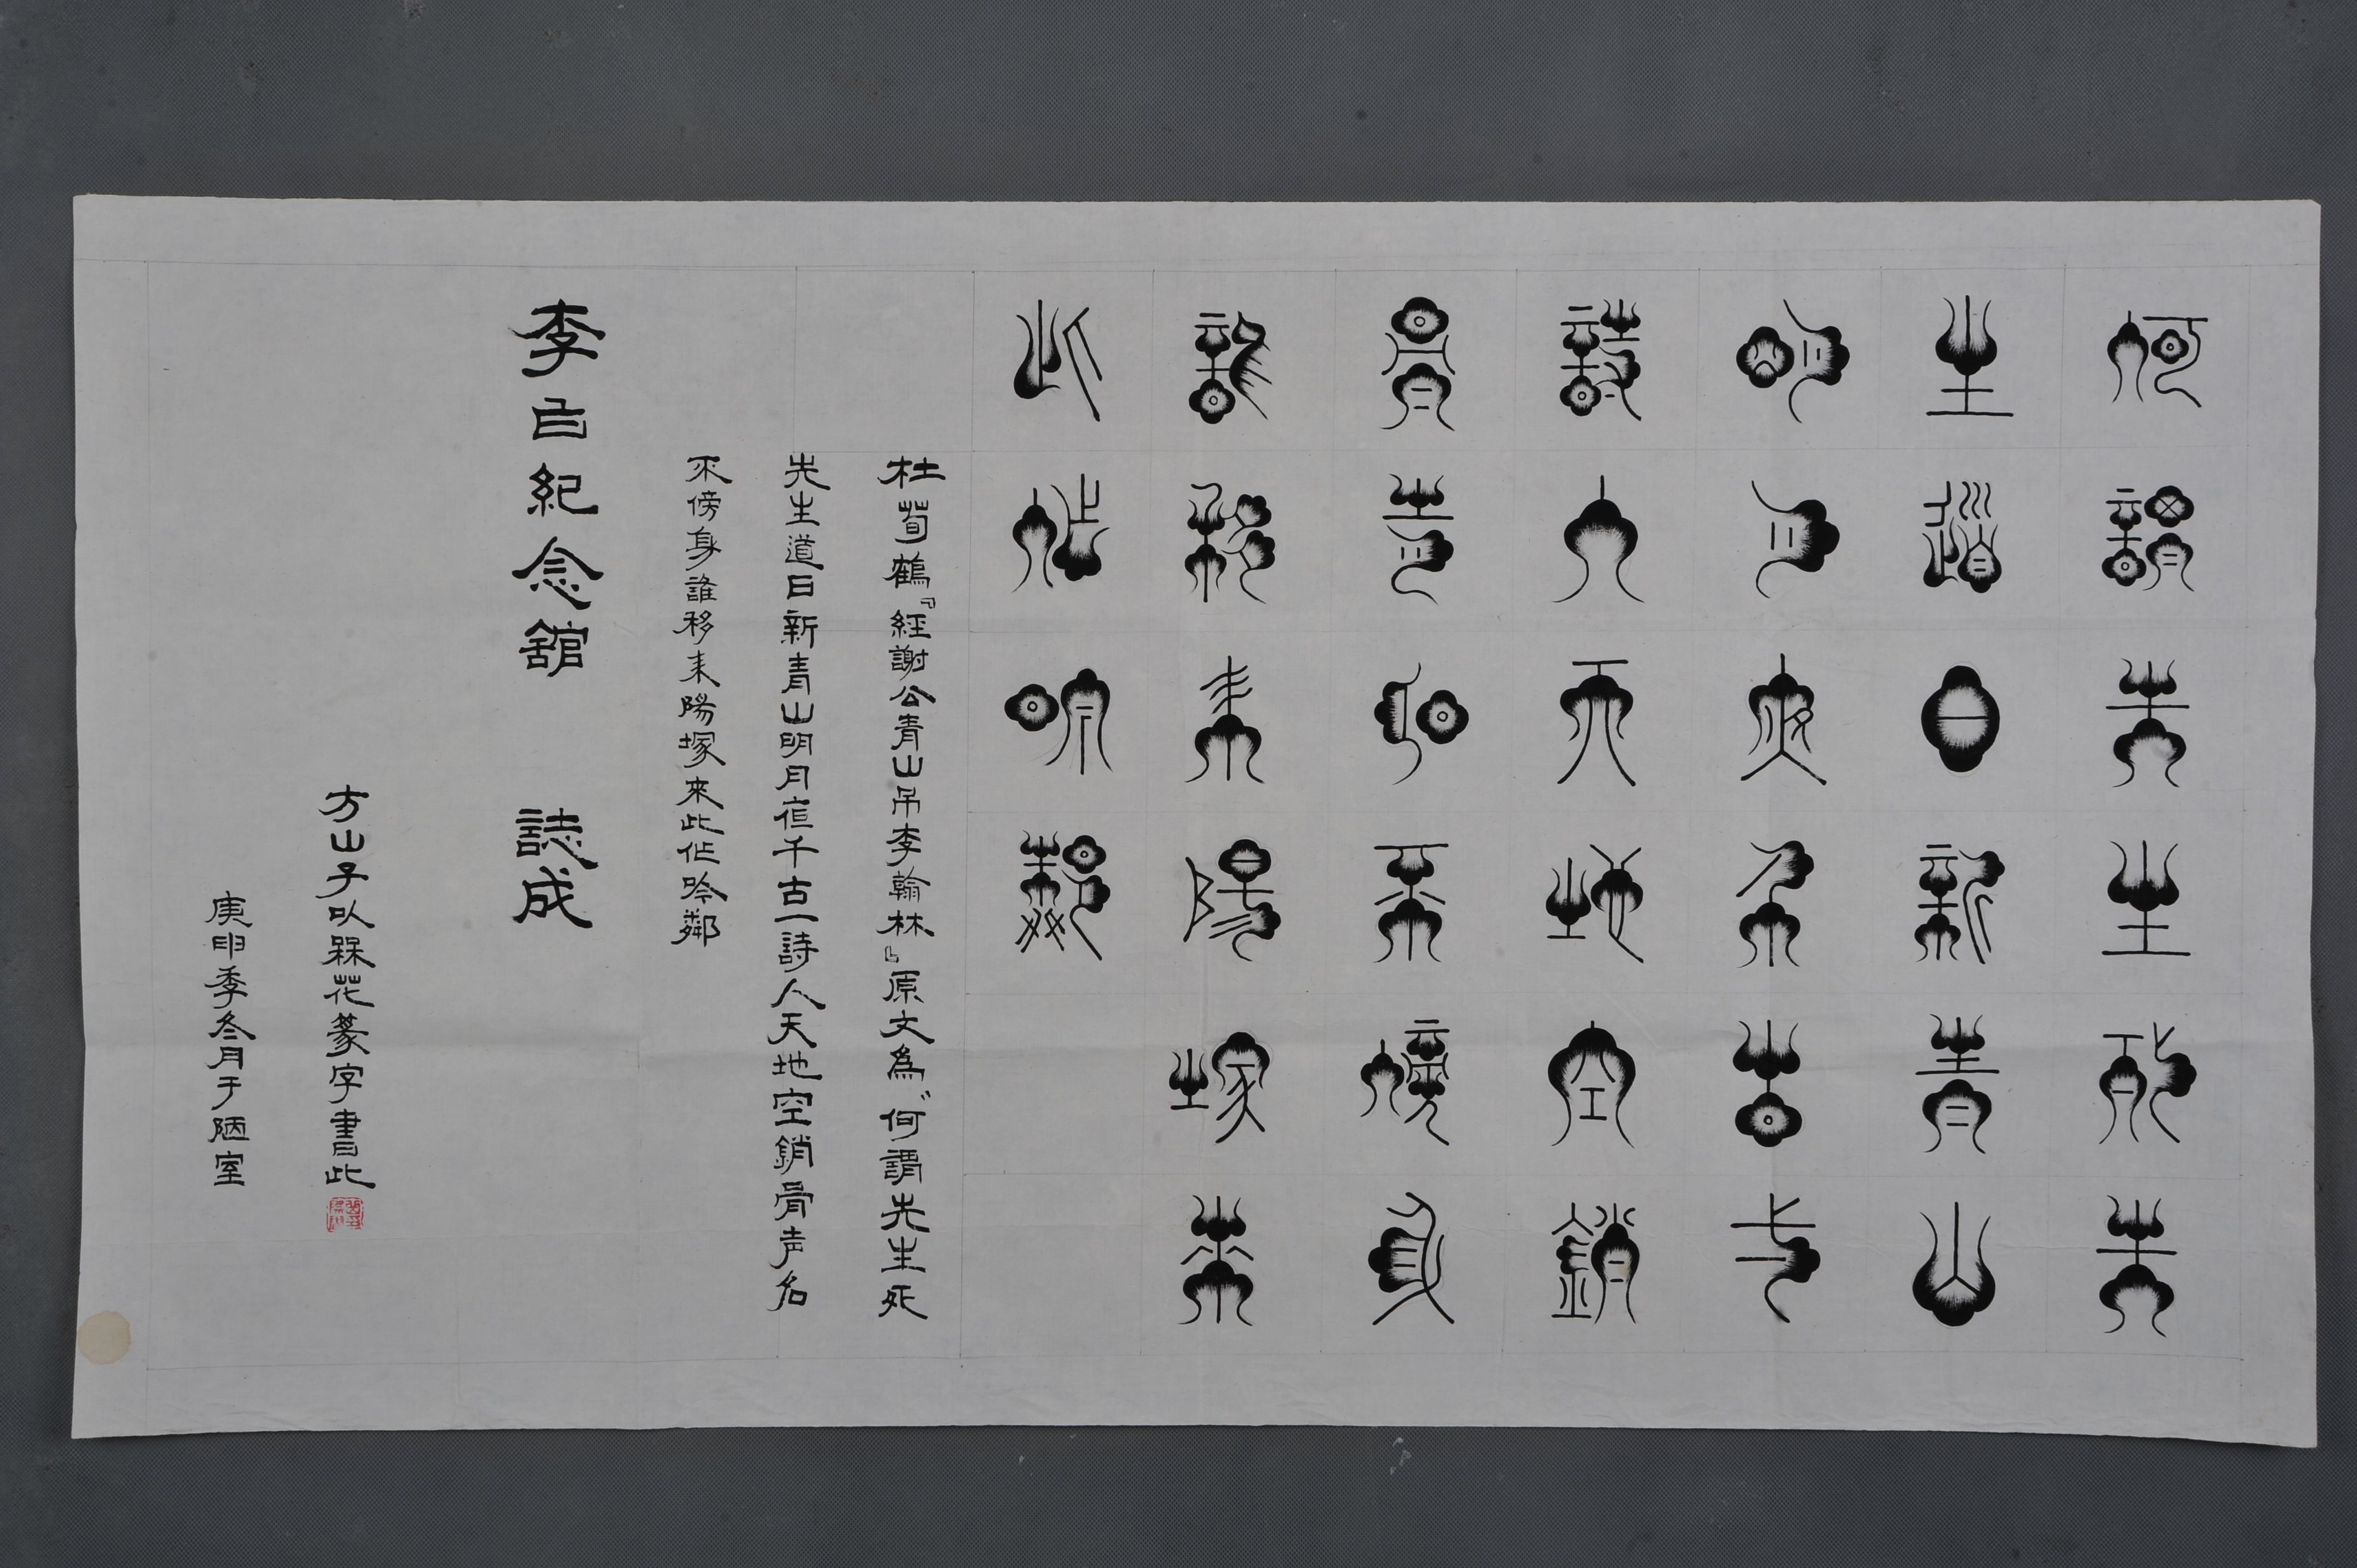 何謂先生死先
生道日新青山
明月夜千古一
詩人天地空銷
骨声名不傍身
誰移耒陽塚來
此作吟鄰
杜荀鶴『經謝公青山吊李翰林』原文為“何謂先生死
先生道日新青山明月夜千古一詩人天地空銷骨声名
不傍身誰移耒陽塚來此作吟鄰
李白紀念館 誌成
方山子以槑花篆字書此
庚申季冬月于陋室